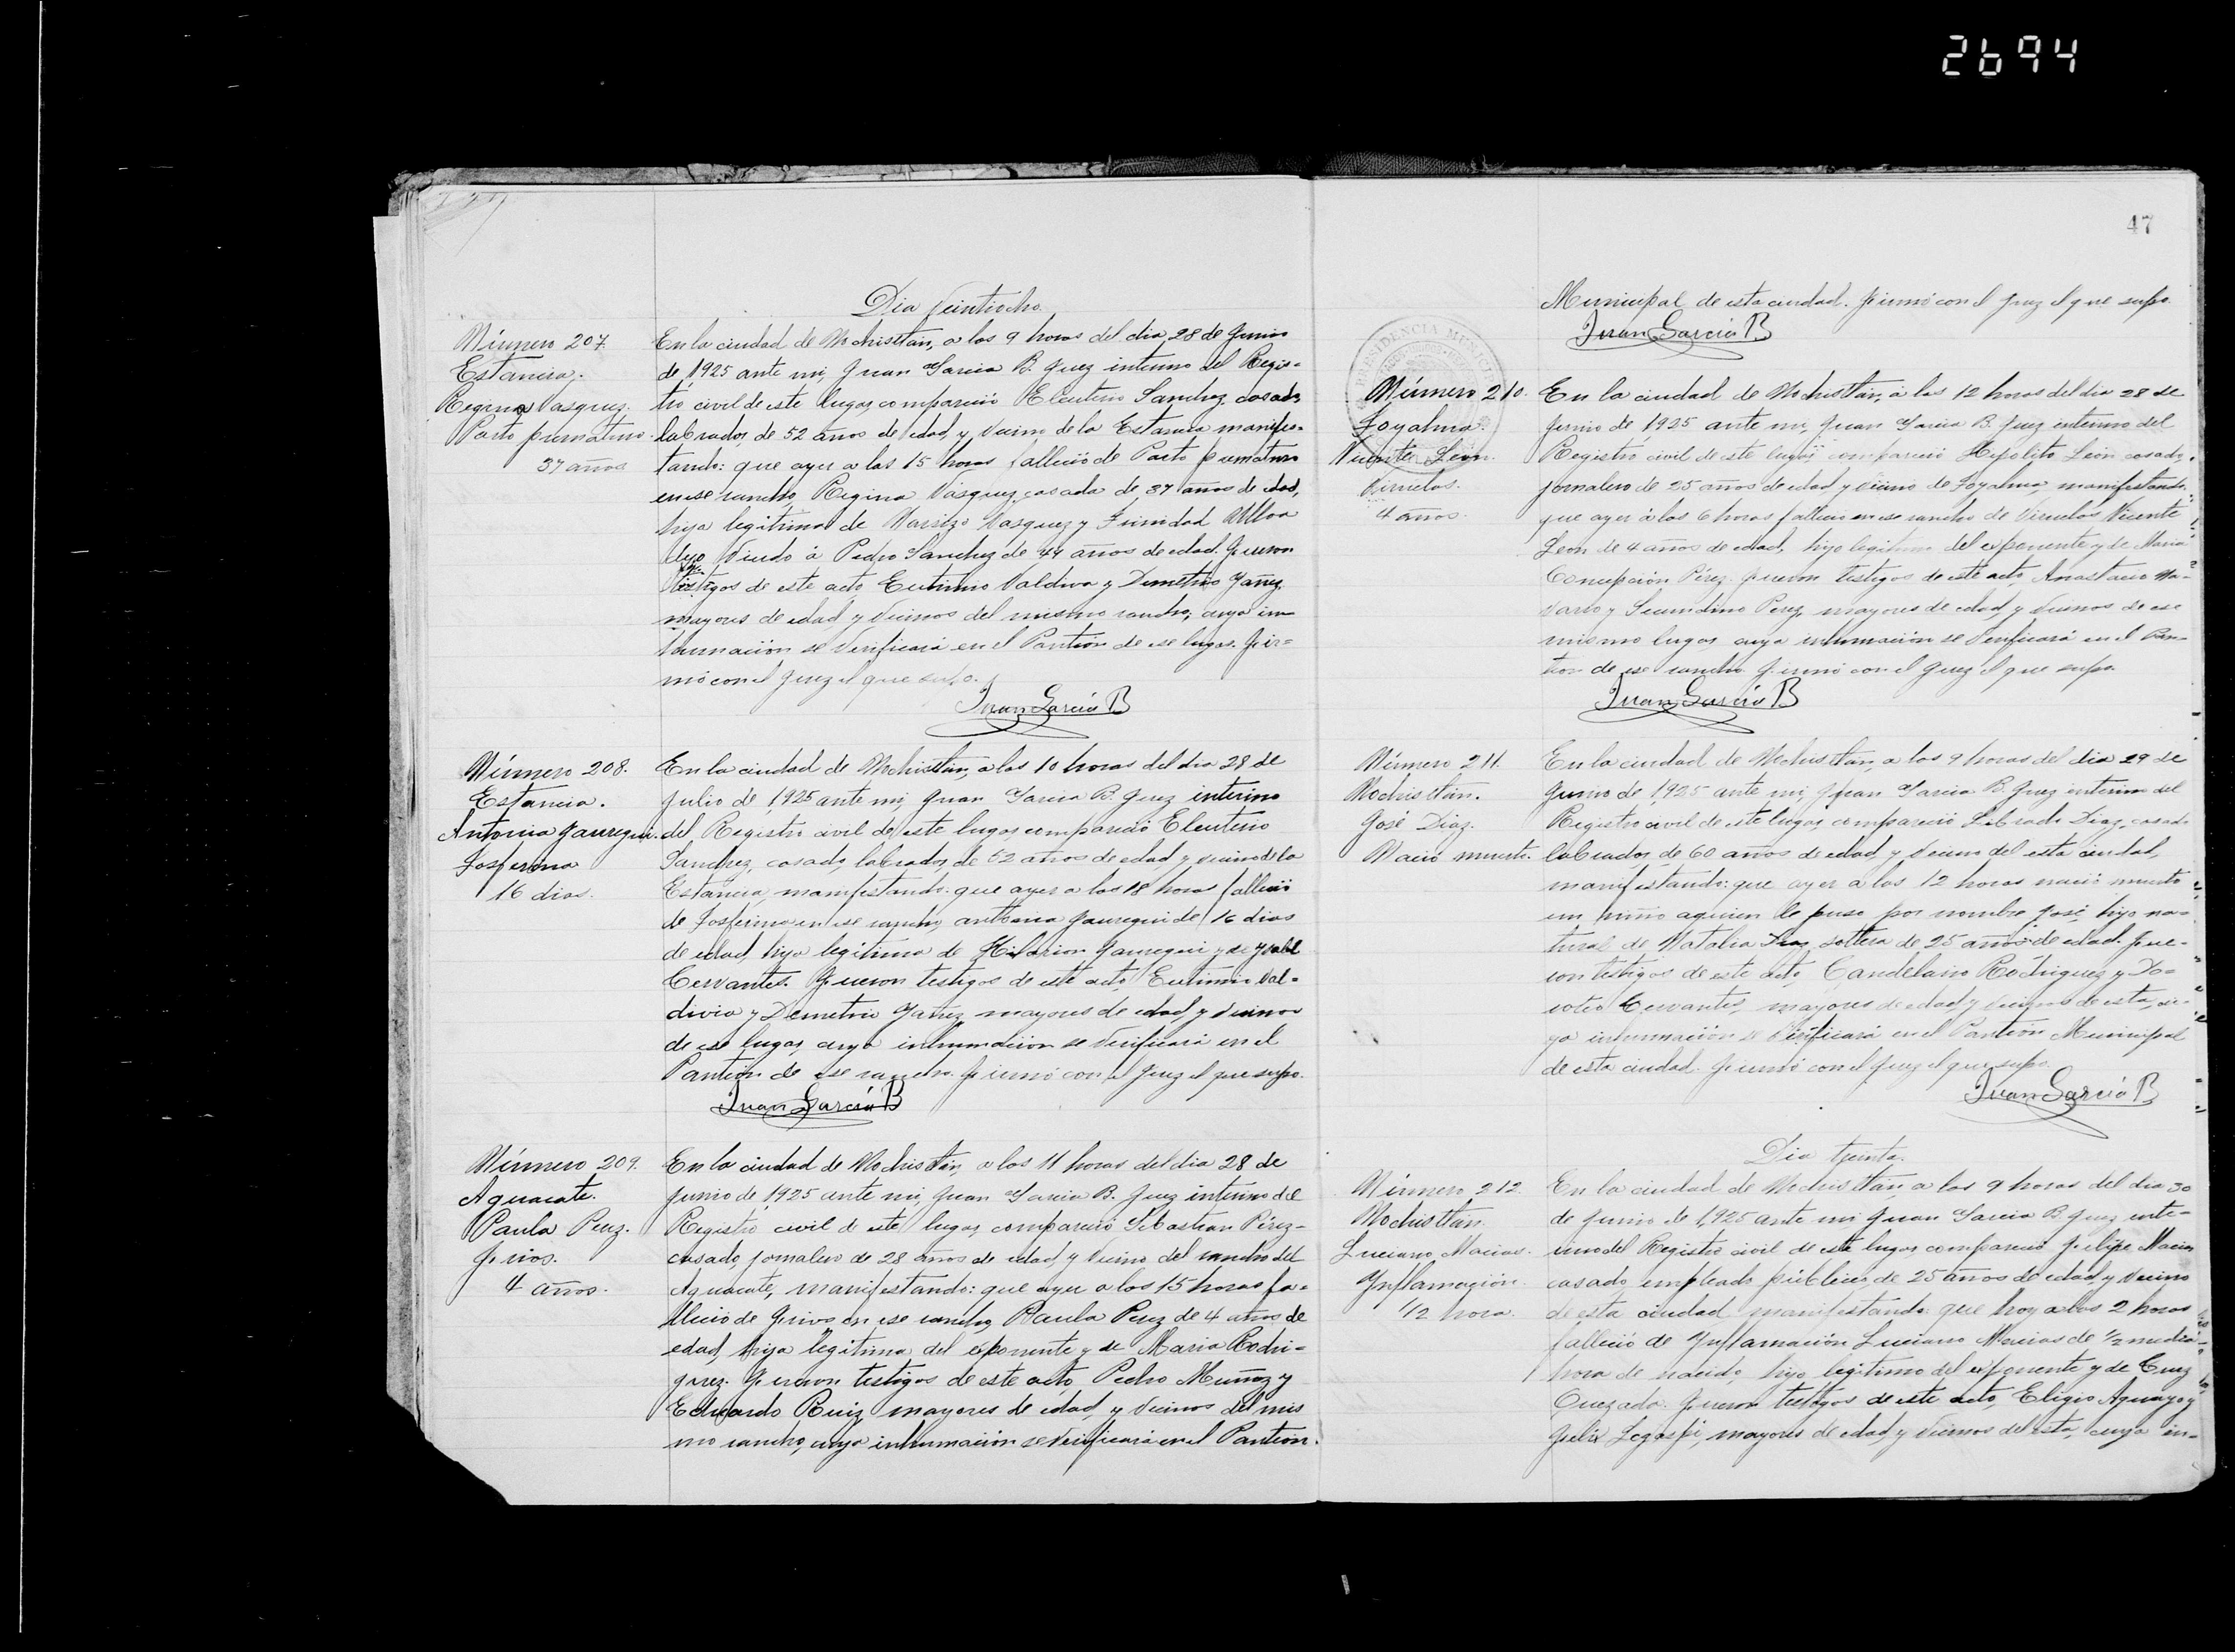 2694
47
Dia Veintiocho.
Número 207.
Estancia.
Regina Vasquez.
Parto prematuro.
37 años.
En la ciudad de Nochistlán, a las 9 horas del dia 28 de Junio
de 1925 ante mi, Juan Garcia B. Juez interino del Regis=
tro civil de este lugar compareció Eleuterio Sanchez casado
labrador, de 52 años de edad, y vecino de la Estancia manifes=
tando: que ayer a las 15 horas falleció de Parto prematuro
en ese rancho, Regina Vásquez, casada de 37 años de edad,
hija legitima de Narsizo Vasquez y Trinidad Ulloa
dejo Viudo á Pedro Sanchez de 44 años de edad. Fueron
testigos de este acto, Eutimio Valdivia y Demetrio Yañez,
mayores de edad y vecinos del mismo rancho, cuya in
humación se verificará en el Panteón de ese lugar. Fir=
mó con el Juez el que supo.
Juan Garcia B
Número 208.
Estancia.
Antonia Jauregui.
Tosferina
16 dias.
En la ciudad de Nochistlán, a las 10 horas del dia 28 de
Julio de 1925 ante mi, Juan Garcia B. Juez interino
del Registro civil de este lugar compareció Eleuterio
Sanchez, casado, labrador, de 52 años de edad, y vecino de la
Estancia, manifestando: que ayer a las 18 horas falleció
de Tosferina en ese rancho, antonia Jauregui de 16 dias
de edad, hija legitima de Hilarion Jauregui y de Ysabel
Cervantes. Fueron testigos de este acto, Eutimio Val=
divia y Demetrio Yañez mayores de edad, y vecinos
de ese lugar, cuya inhumación se verificará en el
Panteón de ese rancho. Firmó con el Juez el que supo.
Juan Garcia B
Número 209.
Aguacate.
Paula Perez.
Frios.
4 años.
En la ciudad de Nochistlán, a las 11 horas del dia 28 de
Junio de 1925 ante mi, Juan Garcia B. Juez interino del
Registro civil de este lugar, compareció Sebastian Pérez-
casado, jornalero de 28 años de edad, y vecino del rancho del
Aguacate, manifestando: que ayer a las 15 horas fa=
lleció de Frios en ese rancho, Paula Perez de 4 años de
edad, hija legitima del exponente y de Maria Rodri=
guez. Fueron testigos de este acto, Pedro Muñoz y
Eduardo Ruiz mayores de edad, y vecinos del mis
mo rancho, cuya inhumación se verificará en el Panteon.
Municipal de esta ciudad. Firmó con el Juez el que supo.
Juan Garcia B
PRESIDENCIA MUNICIPAL
Número 210.
Toyahua.
Vicente León.
Viruelas.
4 años.
En la ciudad de Nochistlán, á las 12 horas del dia 28 de
Junio de 1925 ante mi, Juan Garcia B. Juez interino del
Registro civil de este lugar, compareció Hipolito León casado,
jornalero de 25 años de edad, y vecino de Toyahua, manifestando:
que ayer á las 6 horas falleció en ese rancho de Viruelas Vicente
Leon de 4 años de edad, hijo legitimo del exponente y de Maria
Concepción Pérez. Fueron testigos de este acto, Anastacio Na=
varro y Secundino Perez, mayores de edad, y vecinos de ese
mismo lugar, cuya inhumación se verificará en el Pan=
teon de ese rancho. Firmó con el Juez el que supo.
Juan Garcia B
Número 211.
Nochistlán.
José Diaz.
Nació muerto.
En la ciudad de Nochistlán, a las 9 horas del dia 29 de
Junio de 1925 ante mi, Juan Garcia B. Juez interino del
Registro civil de este lugar, compareció Librado Diaz, casado
labrador, de 60 años de edad, y vecino del esta ciudad,
manifestando: que ayer a las 12 horas nació muerto
un niño aquien le puso por nombre José, hijo na=
tural de Natalia Diaz, soltera de 25 años de edad. Fue=
ron testigos de este acto, Candelario Rodriguez y Do=
roteo Cervantes, mayores de edad, y vecinos de esta, cu=
ya inhumación se verificará en el Panteón Municipal
de esta ciudad. Firmó con el Juez el que supo.
Juan Garcia B
Dia treinta.
Número 212.
Nochistlán.
Luciano Macias.
Ynflamación.
1/2 hora.
En la ciudad de Nochistlán, a las 9 horas del dia 30
de Junio de 1,925 ante mi Juan Garcia B Juez inte=
rino del Registro civil de este lugar, compareció Felipe Macias
casado, empleado público, de 25 años de edad, y vecino
de esta ciudad manifestando: que hoy a las 2 horas
falleció de Ynflamación Luciano Macias de 1/2 media
hora de nacido, hijo legitimo del exponente y de Cruz
Quezada. Fueron testigos de este acto, Eligio Aguayo y
Felix Legaspi, mayores de edad, y vecinos de esta, cuya in=